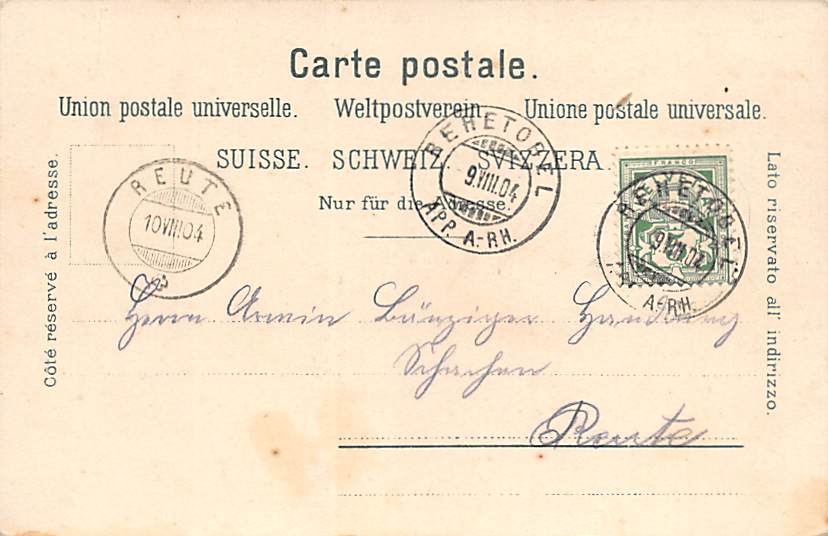 Carte postale.
Union postale universelle. Weltpostverein Unione postale universale.
SUISSE. SCHWEIZ SVIZZERA.
Nur für die Adresse.
Côté réservé à l'adresse.
Lato riservato all' indirizzo.
REUTE
10VIII04
REHETOBEL
9.VIII.04
APP. A.-RH.
FRANCO
REHETOBEL
9.VIII.04
A.-RH.
Herrn Armin Bänziger Handlung
Schachen
Reute